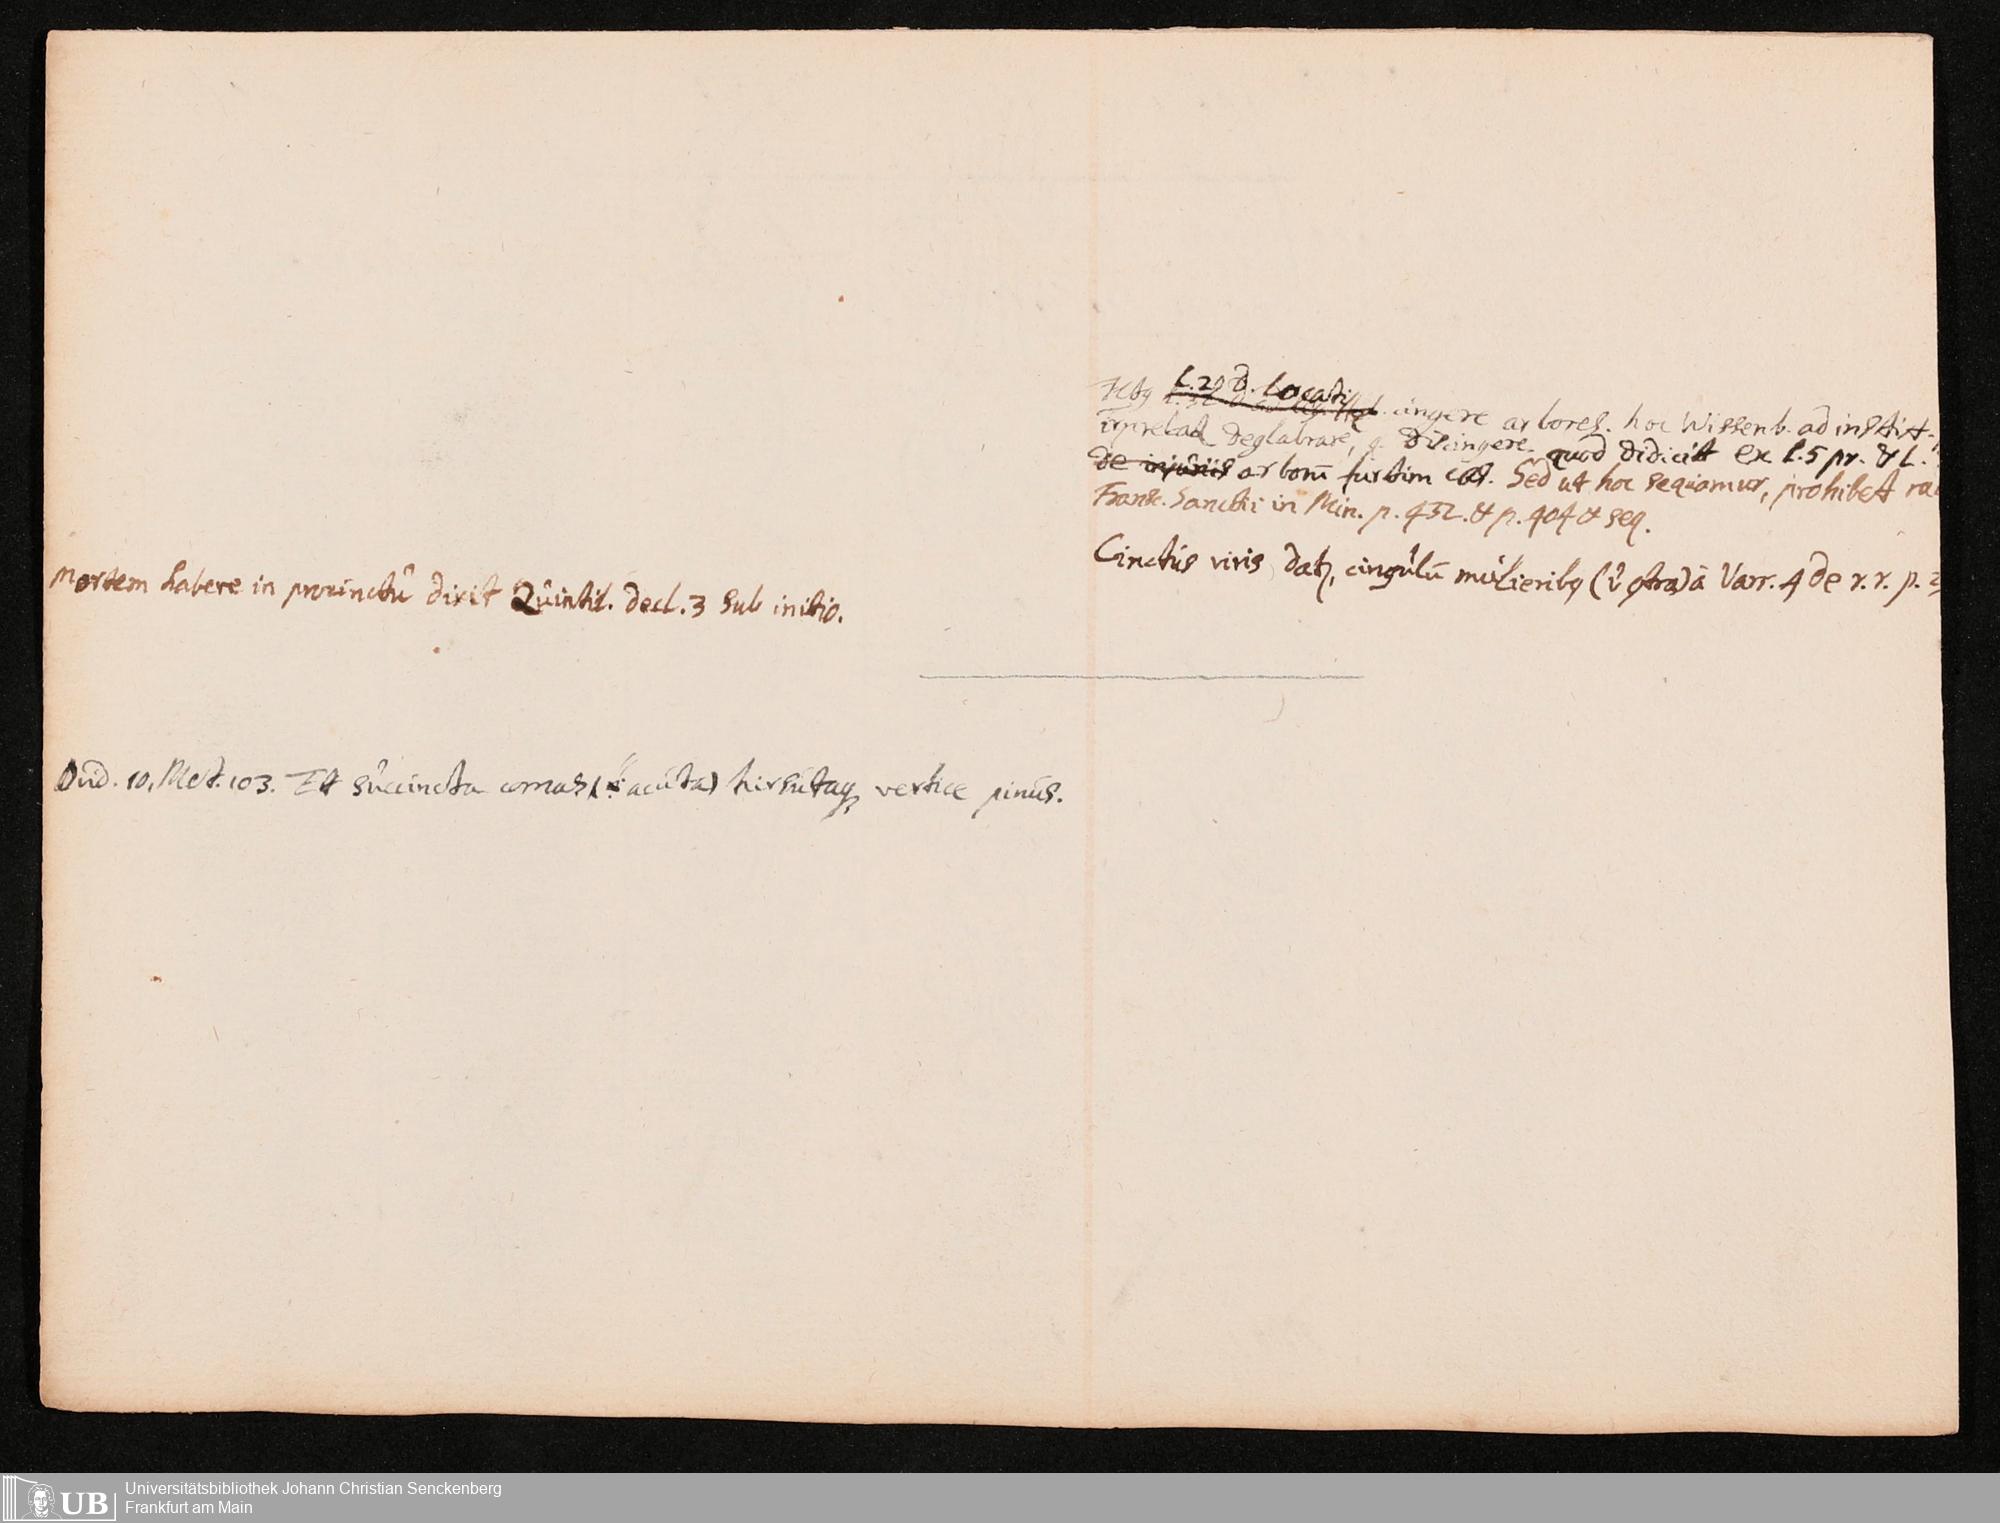 Mortem habere in procinctû dixit Qûintil. decl. 3 sub initio.
Ovid. 10, Met. 103. Et sûccincta comas (acûta) hirsûtaq vertice pinûs.
L. 20 D. Locati
cingere arbores. hoc Wissenb. ad instit.
deglabrare, discingere. quod didicit ex l. 5 pr. & L.
de injûriis arborū furtim Sed ut hoc sequamur, prohibet
Franc. Sanctii in Min. p. 452. & p. 404 & seq.
Cinctûs viris cingûlū mûlieribq à Varr. 4 de r. r. p.
UB
Universitätsbibliothek Johann Christian Senckenberg
Frankfurt am Main